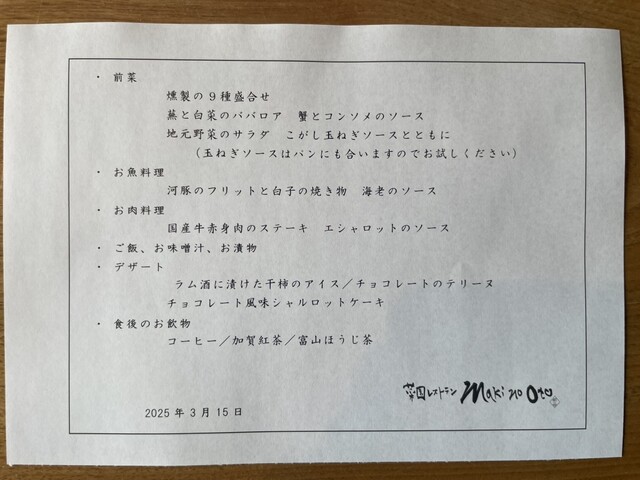 ・ 前菜
燻製の９種盛合せ
蕪と白菜のババロア　蟹とコンソメのソース
地元野菜のサラダ　こがし玉ねぎソースとともに
（玉ねぎソースはパンにも合いますのでお試しください）
・ お魚料理
河豚のフリットと白子の焼き物　海老のソース
・ お肉料理
国産牛赤身肉のステーキ　エシャロットのソース
・ ご飯、お味噌汁、お漬物
・ デザート
ラム酒に漬けた干柿のアイス／チョコレートのテリーヌ
チョコレート風味シャルロットケーキ
・ 食後のお飲物
コーヒー／加賀紅茶／富山ほうじ茶
レストラン Maki no Oto
2025 年 3 月 15 日